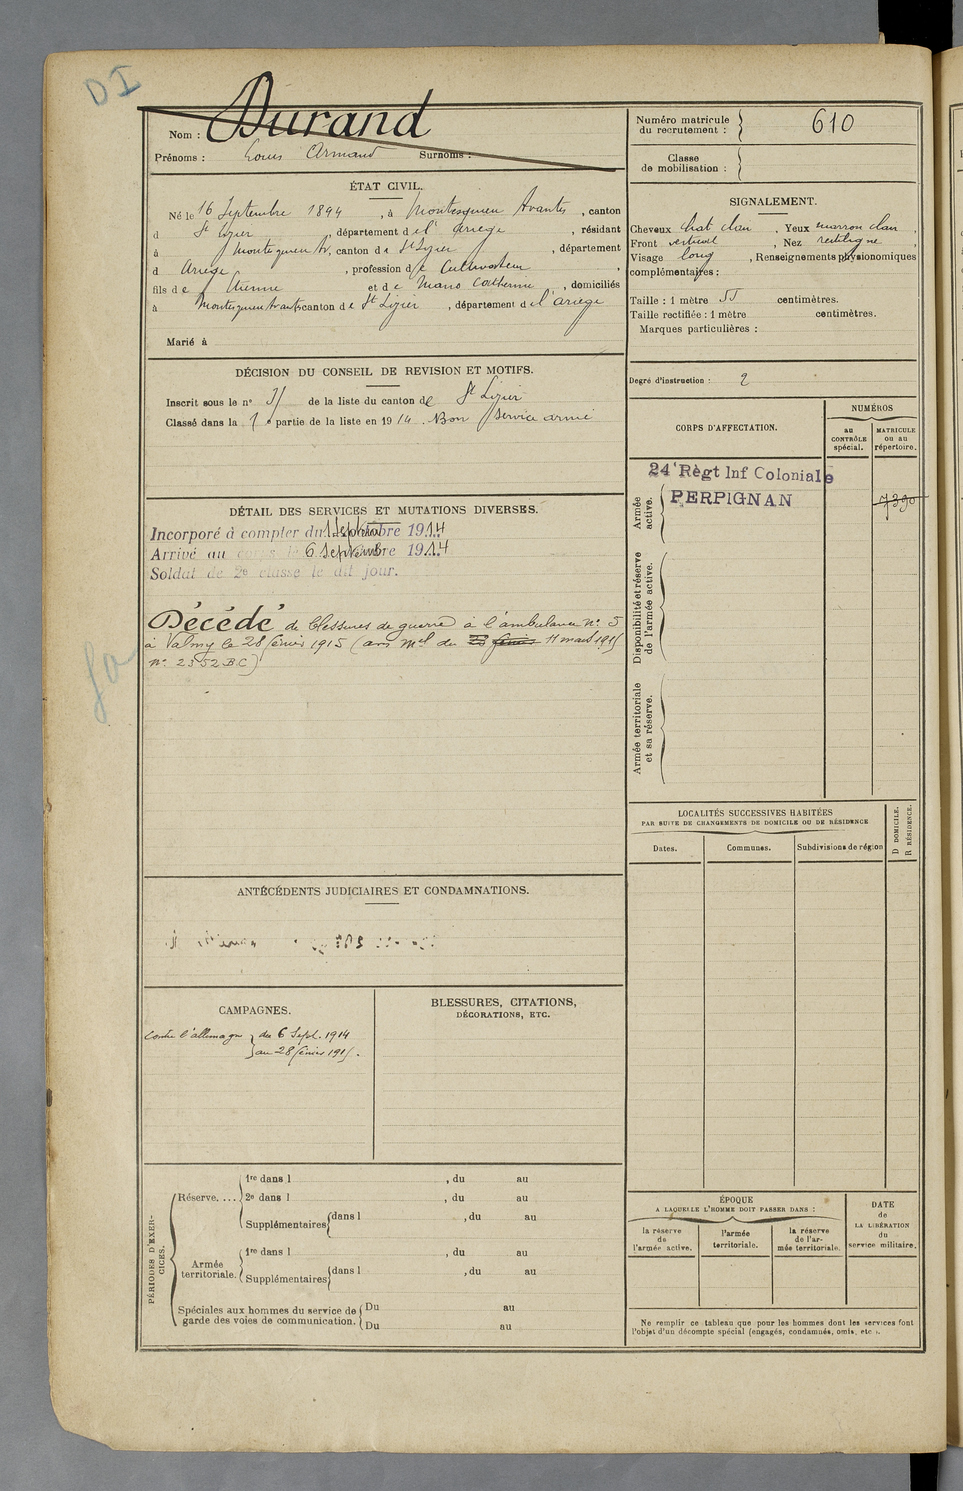 DI
Nom : Durand
Prénoms : Louis Armand Surnoms :
ÉTAT CIVIL.
Né le 16 Septembre 1894, à Montesquieu Avantès, canton
d St Lizier, département de l'Ariège, résidant
à Montesquieu Av, canton de St Lizier, département
d Ariège, profession de Cultivateur,
fils de Etienne et de Catherine, domiciliés
à Montesquieu Avantès canton de St Lizier, département de l'ariège
Marié à
DÉCISION DU CONSEIL DE REVISION ET MOTIFS.
Inscrit sous le n° de la liste du canton de St Lizier
Classé dans la 1e partie de la liste en 1914. Bon service armé
DÉTAIL DES SERVICES ET MUTATIONS DIVERSES.
Incorporé à compter du 1 Septembre 1914
Arrivé au corps le 6 Septembre 1914
Soldat de 2e classe le dit jour.
Décédé de blessures de guerre à l'ambulance n° 5
à Valmy le 28 février 1915 (avis mel du 28 février 11 mars 1915
n° 2352 BC)
ANTÉCÉDENTS JUDICIAIRES ET CONDAMNATIONS.
CAMPAGNES.
Contre l'allemagne } du 6 Sept. 1914
au 28 février 1915.
BLESSURES, CITATIONS,
DÉCORATIONS, ETC.
PÉRIODES D'EXERCICES.
Réserve....
1re dans l , du au
2e dans l , du au
Supplémentaires { dans l , du au
Armée territoriale.
1re dans l , du au
Supplémentaires { dans l , du au
Spéciales aux hommes du service de garde des voies de communication. { Du au
Du au
Numéro matricule du recrutement : } 610
Classe de mobilisation : }
SIGNALEMENT.
Cheveux chat clair, Yeux marron clair,
Front vertical, Nez rectiligne,
Visage long, Renseignements physionomiques
complémentaires :
Taille : 1 mètre 55 centimètres.
Taille rectifiée : 1 mètre centimètres.
Marques particulières :
Degré d'instruction : 2
CORPS D'AFFECTATION.
NUMÉROS
au CONTRÔLE spécial.
MATRICULE ou au répertoire.
Armée active.
24e Règt Inf Coloniale
PERPIGNAN
7390
Disponibilité et réserve de l'armée active.
Armée territoriale et sa réserve.
LOCALITÉS SUCCESSIVES HABITÉES
PAR SUITE DE CHANGEMENTS DE DOMICILE OU DE RÉSIDENCE
D DOMICILE.
R RÉSIDENCE.
Dates.
Communes.
Subdivisions de région
ÉPOQUE
A LAQUELLE L'HOMME DOIT PASSER DANS :
la réserve de l'armée active.
l'armée territoriale.
la réserve de l'armée territoriale.
DATE de LA LIBÉRATION du service militaire.
Ne remplir ce tableau que pour les hommes dont les services font
l'objet d'un décompte spécial (engagés, condamnés, omis, etc.).